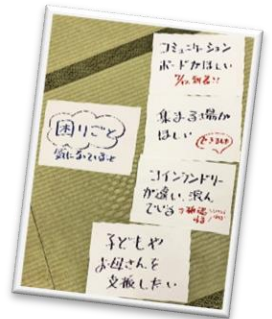 コミュニケーション
ボードがほしい
集まる場が
ほしい
困りごと
気になっていること
コインランドリー
が遠い、混ん
でいる
子どもや
お母さんを
支援したい